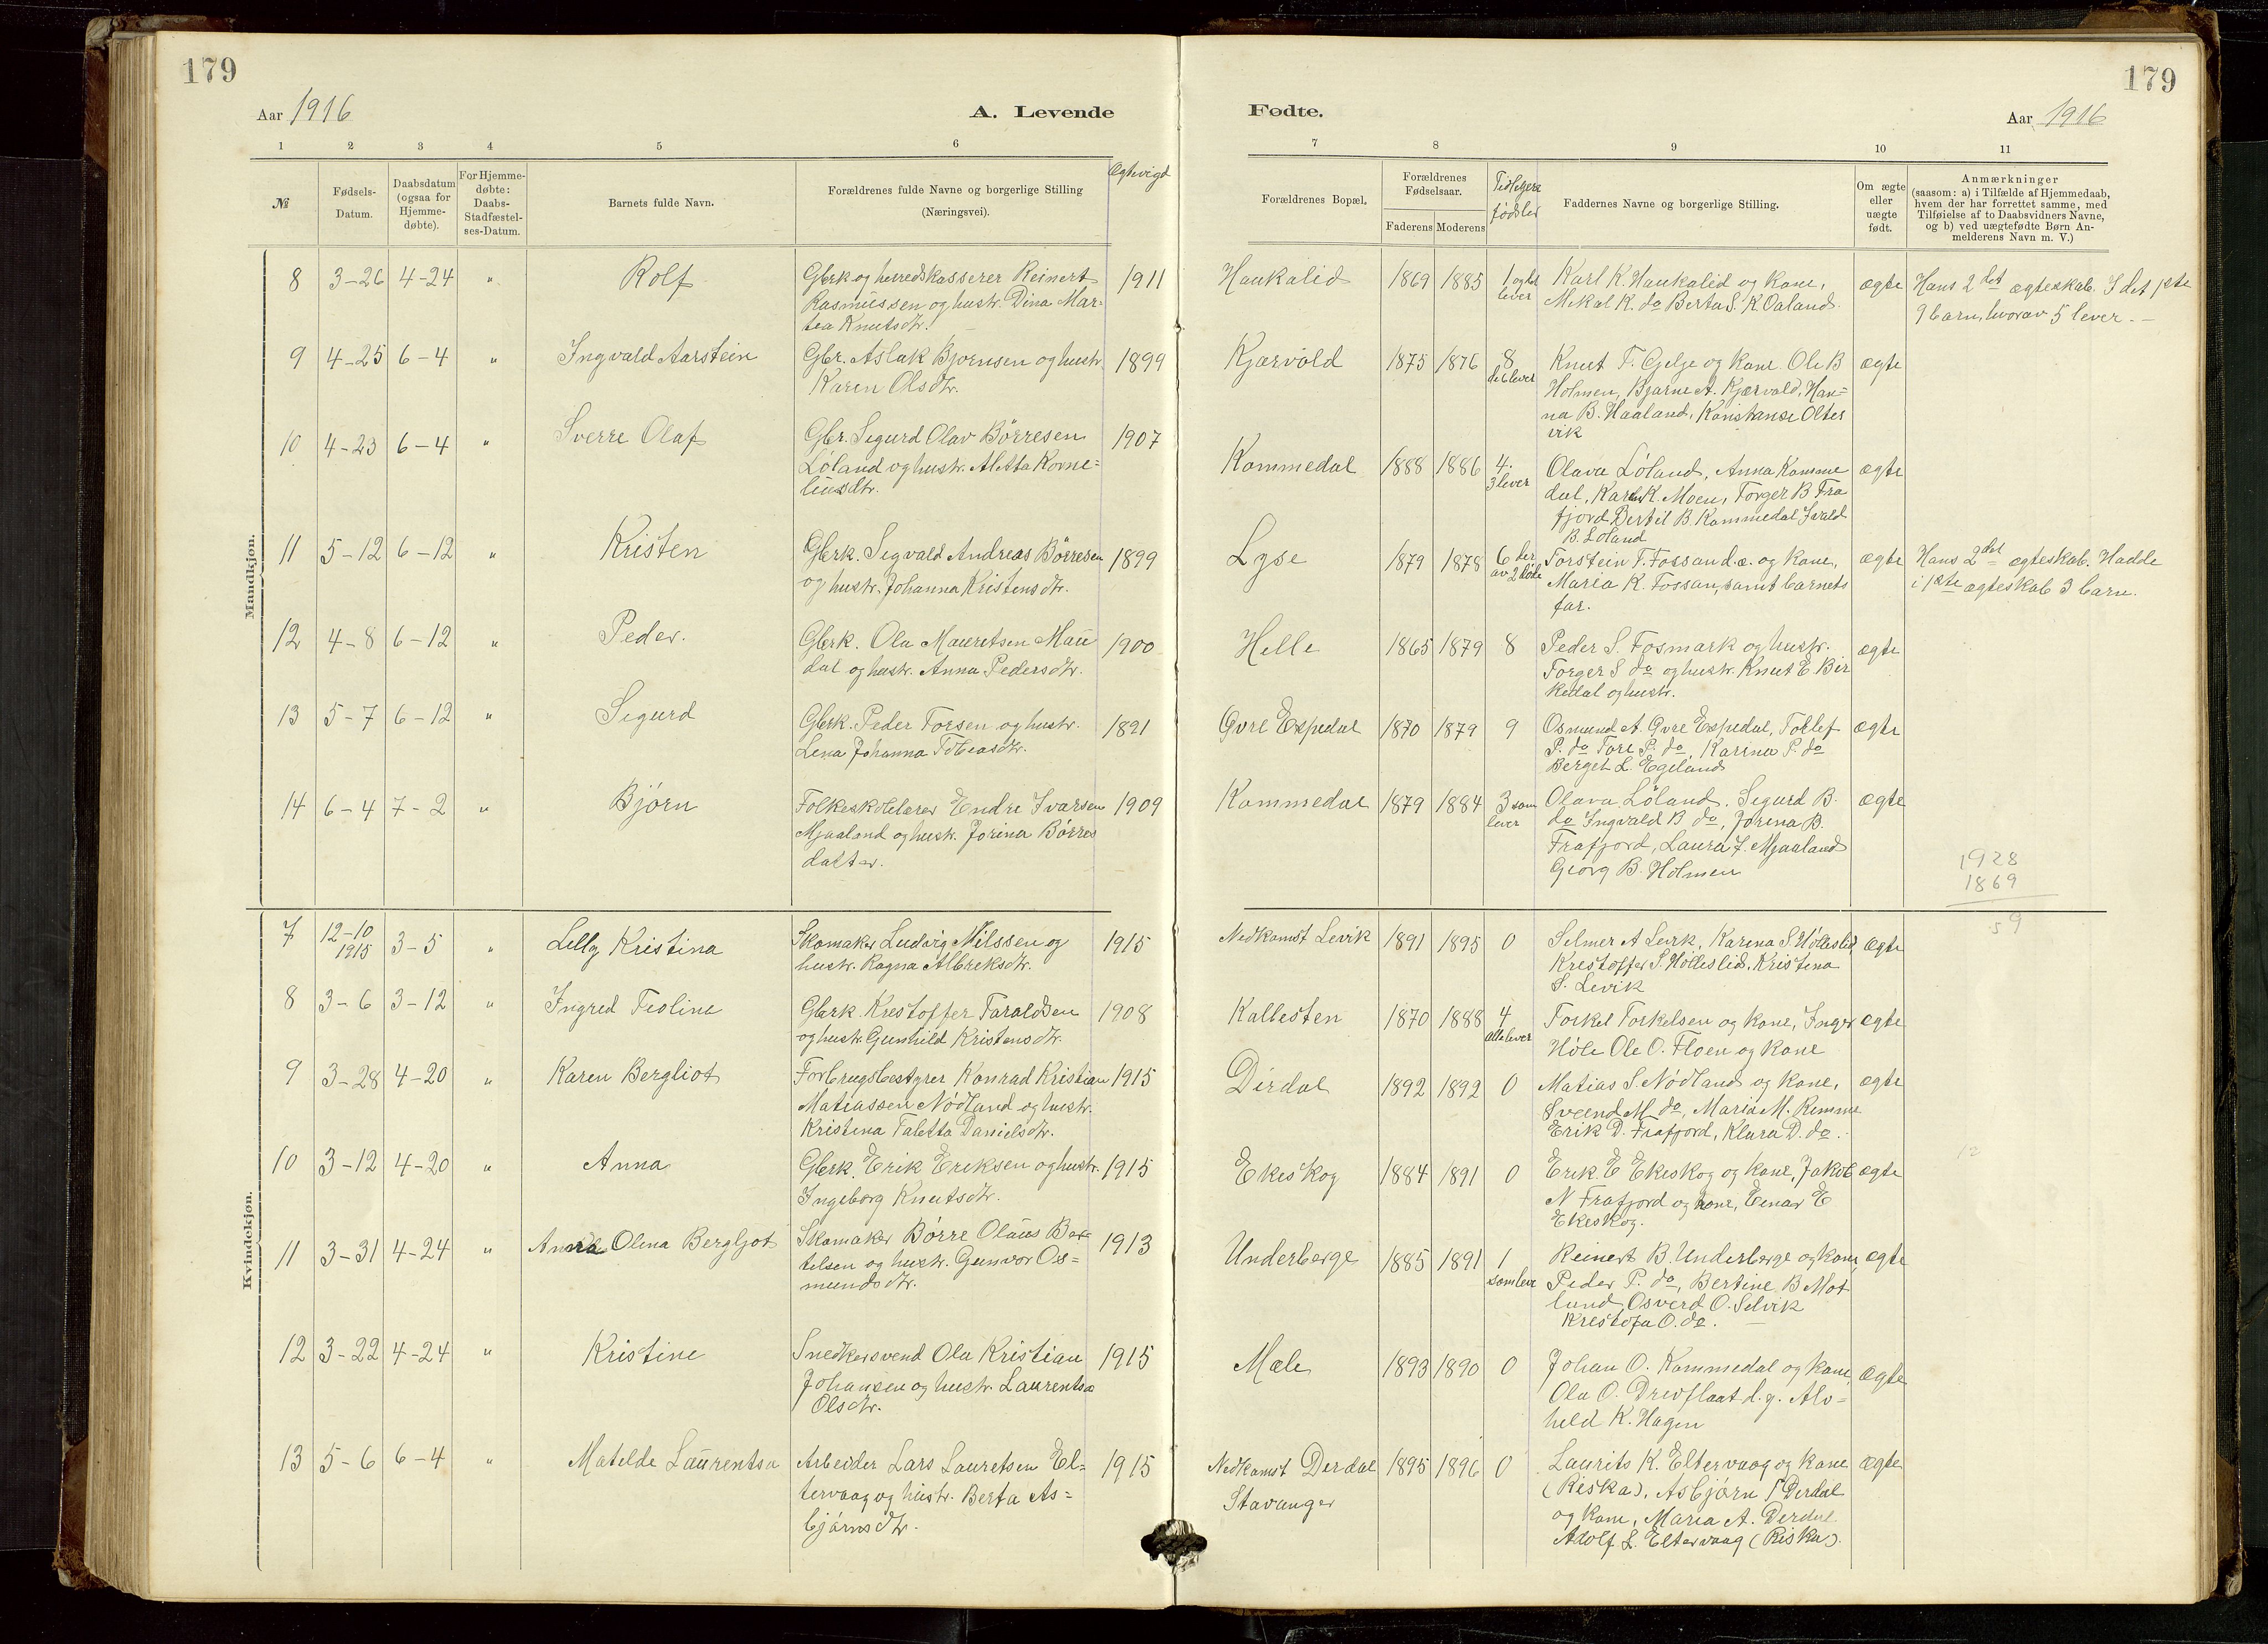 179
179
Aar 1916
A. Levende
Fødte.
Aar 1916
1 2 3 4 5 6
7 8 9 10 11
№
Fødsels-Datum.
Daabsdatum (ogsaa for Hjemme-døbte).
For Hjemme-døbte: Daabs-Stadfæstel-ses-Datum.
Barnets fulde Navn.
Forældrenes fulde Navne og borgerlige Stilling
(Næringsvei).
Ægtevigd
Forældrenes Bopæl.
Forældrenes Fødselsaar.
Faderens Moderens
Tidligere fødsler
Faddernes Navne og borgerlige Stilling.
Om ægte eller uægte født.
Anmærkninger
(saasom: a) i Tilfælde af Hjemmedaab,
hvem der har forrettet samme, med
Tilføielse af to Daabsvidners Navne,
og b) ved uægtefødte Børn An-
melderens Navn m. V.)
Mandkjøn.
8 3-26 4-24 " Rolf
Gbrk og herredskasserer Reinert
Rasmussen og hustr. Dina Mar-
tea Knutsdtr.
1911 Haukalid 1869 1885
lever
Karl K. Haukalid og kone,
Mikal K. do Berta S. K. Oaland.
ægte
Hans 2det ægteskab. I det 1ste
9 barn, hvorav 5 lever. –
9 4-25 6-4 " Ingvald Aarstein
Gbr. Aslak Bjørnsen og hustr.
Karen Olsdtr.
1899 Kjærvold 1875 1876 8
Knut T. Gjelge og kone Ole B
Holmen, Bjarne A. Kjærvold, Han=
na B. Haaland, Konstanse Olter
vik
ægte
10 4-23 6-4 " Sverre Olaf
Gbr. Sigurd Olav Børresen
Løland og hustr. Aletta Korne=
liusdtr.
1907 Kommedal 1888 1886 4.
3 lever
Olava Løland, Anna Komme
dal, K. Moen, Torger B Fra
fjord Bertil B. Kommedal Ivald
B. Løland
ægte
11 5-12 6-12 " Kristen
Gbrk. Sigvald Andreas Børresen
og hustr. Johanna Kristensdtr.
1899 Lyse 1879 1878 6 der
av 2 døde
Torstein T. Fossan d.æ. og kone,
Maria K. Fossan, samt barnets
far.
ægte
Hans 2det ægteskab. Hadde
i 1ste ægteskab 3 barn.
12 4-8 6-12 " Peder.
Gbrk. Ola Mauretsen Mau
dal og hustr. Anna Pedersdtr.
1900 Helle 1865 1879 8
Peder S. Fosmark og hustr.
Torger S do og hustr. Knut E Bir
kedal og hustr.
ægte
13 5-7 6-12 " Sigurd
Gbrk. Peder Torsen og hustr.
Lena Johanna Tobiasdtr.
1891 Øvre Espedal 1870 1879 9
Osmund A. Øvre Espedal, Tollef
P. do Tore P. do, Karina P. do
Berget L. Egeland
ægte
14 6-4 7-2 " Bjørn
Folkeskolelærer Endre Ivarsen
Mjaaland og hustr. Jorina Børres
datter.
1909 Kommedal 1879 1884 3 som
lever
Olava Løland. Sigurd B.
do Ingvald B do, Jorina B.
Frafjord, Laura I. Mjaaland
Georg B. Holmen
ægte
1928
1869
59
Kvindekjøn.
7 12-10
1915
3-5 " Lilly Kristina
Skomaker Ludvig Nilssen og
hustr. Ragna Albreksdtr.
1915 Nedkomst Levik 1891 1895 0
Selmer A Levik, Karina S Hølleslid,
Krestoffer S. Hølleslid, Kristina
S. Levik
ægte
8 3-6 3-12 " Ingred Teoline
Gbrk. Krestoffer Taraldsen
og hustr. Gunhild Kristensdtr.
1908 Kallesten 1870 1888 4
alle lever
Torkel Torkelsen og kone, Inger
Høle Ole O. Floen og kone
ægte
9 3-28 4-20 " Karen Bergliot
Forbrugsbestyrer Konrad Kristian
Matiassen Nødland og hustr.
Kristina Taletta Danielsdtr.
1915 Dirdal 1892 1892 0
Matias S. Nødland og kone,
Sveend M do, Maria M. Rimme
Erik D. Frafjord, Klara D. do.
ægte
10 3-12 4-20 " Anna
Gbrk. Erik Eriksen og hustr.
Ingeborg Knutsdtr.
1915 Ekeskog 1884 1891 0
Erik E Ekeskog og kone, Jakob
N Frafjord og kone, Einar E
Ekeskog.
ægte
12
11 3-31 4-24 " Anna Olena Bergljot
Skomaker Børre Olaus Ber-
telsen og hustr. Gunvor Os=
mundsdtr.
1913 Underberge 1885 1891 1
som lever
Reinert B. Underberge og kone,
Peder P. do, Bertine B Mot
land, Osverd O. Selvik
Krestofa O. do.
ægte
12 3-22 4-24 " Kristine
Snedkersvend Ola Kristian
Johansen og hustr. Laurentsa
Olsdtr.
1915 Mæle 1893 1890 0
Johan O. Kommedal og kone,
Ola O. Drevflaat d.y. Alv=
held K. Hagen
ægte
13 5-6 6-4 " Matilde Laurentsa
Arbeider Lars Lauretsen El=
tervaag og hustr. Berta As=
bjørnsdtr.
1915 Nedkomst Derdal
Stavanger
1895 1896 0
Laurits K. Eltervaag og kone
(Riska), Asbjørn T Derdal
og kone, Maria A. Derdal.
Adolf L. Eltervaag (Riska).
ægte